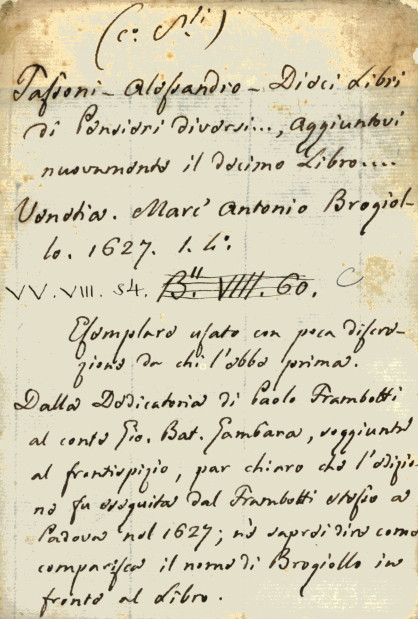 (co. Sli)
Tassoni - Alessandro - Dieci Libri
di Pensieri diversi..., aggiuntovi
nuovamente il decimo Libro....
Venetia. Marc' Antonio Brogiol-
lo. 1627. 1. 4o.
VV. VIII. 54. B.u VIIII. 60. C
Esemplare usato con poca discre-
zione da chi l'ebbe prima.
Dalla Dedicatoria di Paolo Frambotti
al conte Gio. Bat. Gambara, soggiunta
al frontispizio, par chiaro che l'edizio-
ne fu eseguita dal Frambotti stesso a
Padova nel 1627; nè saprei dire come
comparisca il nome di Brogiollo in
fronte al Libro.